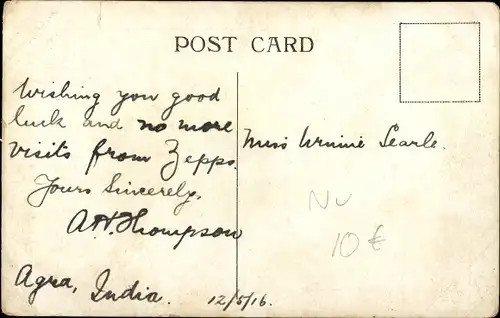 POST CARD
Wishing you good
luck and no more
visits from Zepps.
Yours Sincerely,
A H Thompson
Agra, India.
12/5/16.
Miss Winnie Searle.
10 €